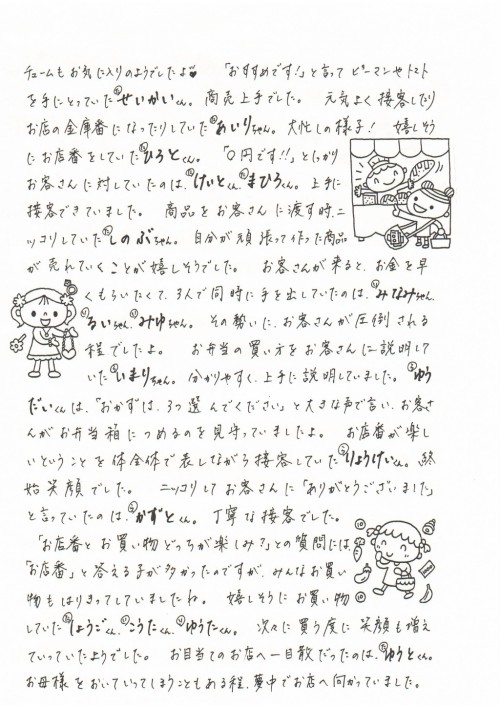 チュームもお気に入りのようでしたよ♥ 「おすすめです!」と言って ピーマンやトマト
を手にとっていたせいかいくん。商売上手でした。 元気よく接客したり
お店の金庫番になったりしていたあいりちゃん。大忙しの様子! 嬉しそう
にお店番をしていたひろとくん。 「〇円です!!」としっかり
お客さんに対していたのは、けいとくん、まひろくん。上手に
接客できていました。 商品をお客さんに渡す時、ニ
ッコリしていたしのぶちゃん。自分が頑張って作った商品
が売れていくことが嬉しそうでした。 お客さんが来ると、お金を早
くもらいたくて、3人で同時に手を出していたのは、みなみちゃん、
るいちゃん、みゆちゃん。その勢いに、お客さんが圧倒される
程でしたよ。 お弁当の買い方をお客さんに説明して
いたいまりちゃん。分かりやすく、上手に説明していました。ゆう
だいくんは、「おかずは、3つ選んでください」と大きな声で言い、お客さ
んがお弁当箱につめるのを見守っていましたよ。 お店番が楽し
いということを体全体で表しながら接客していたりょうけいくん。終
始笑顔でした。 ニッコリしてお客さんに「ありがとうございました」
と言っていたのは、かずとくん。丁寧な接客でした。
「お店番とお買い物どっちが楽しみ?」との質問には
「お店番」と答える子が多かったのですが、みんなお買い
物もはりきってしていましたね。 嬉しそうにお買い物
していたしょうごくん、こうたくん、ゆうたくん。 次々に買う度に笑顔も増え
ていっていたようでした。 お目当てのお店へ一目散だったのは、ゆうとくん。
お母様をおいていってしまうこともある程、夢中でお店へ向かっていました。